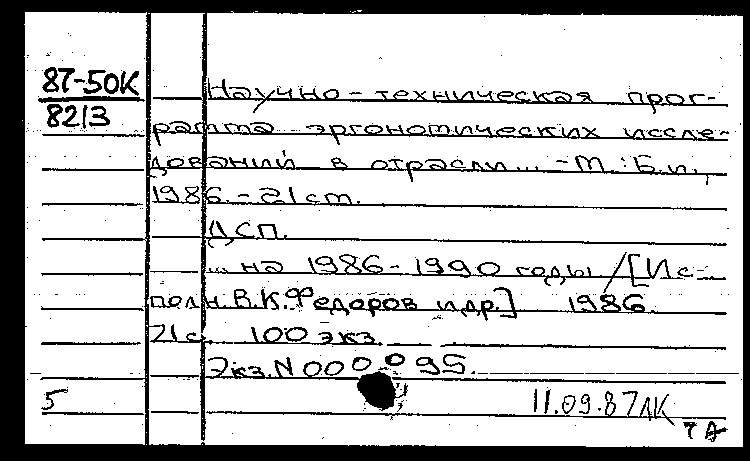 87-50К
8213
Научно-техническая прог-
рамма эргономических иссле-
дований в отрасли... -М.:Б.и.,
1986.-21ст.
ДСП.
... на 1986-1990 годы /[Ис-
полн.В.К.Федоров и др.] 1986.
21с. 100 экз.
Экз.N 000095.
5
11.09.87 ЛК